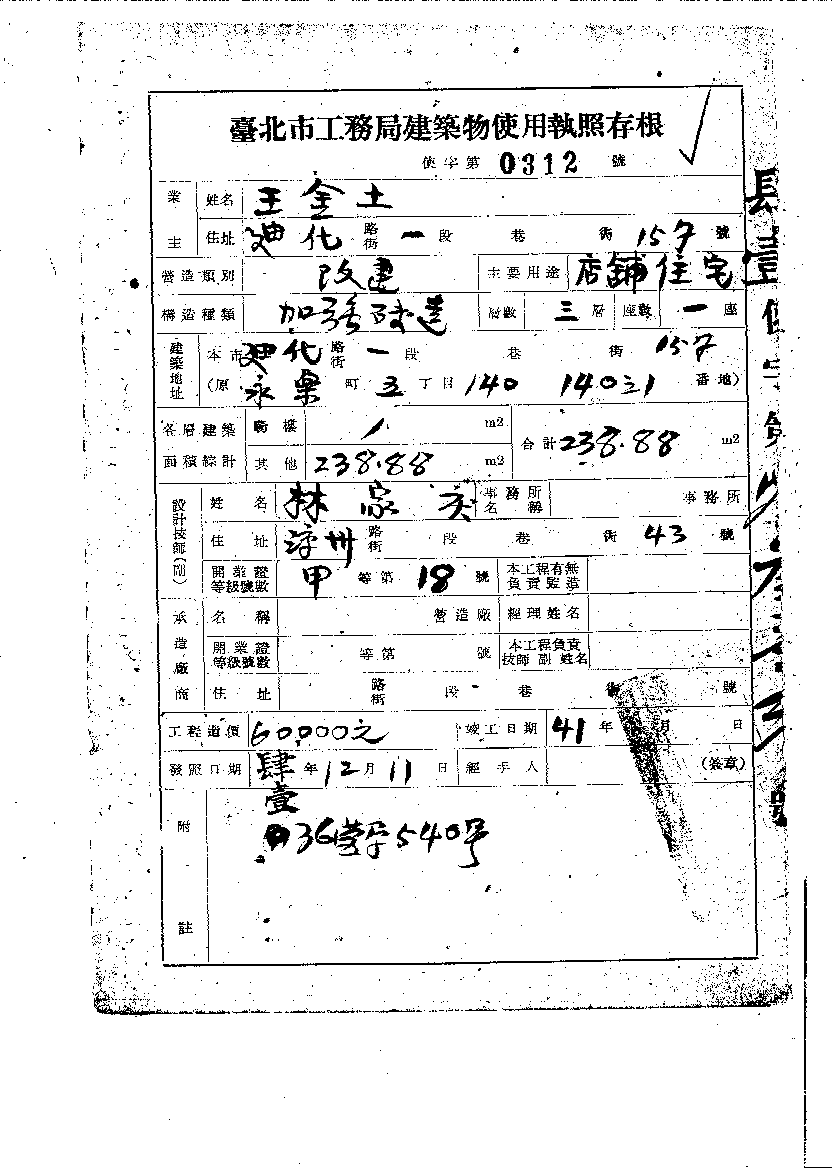 臺北市工務局建築物使用執照存根
使字第 0312 號
業主 姓名 王金土
住址 迪化 路街 一 段 巷 街 157 號
營造類別 改建 主要用途 店鋪住宅
構造種類 加強磚造 層數 三 層 座數 一 座
建築地址 本市 迪化 路街 一 段 巷 街 157
(原 永樂 町 五 丁目 140 140之1 番地)
各層建築面積綜計 騎樓 m2 合計 238.88 m2
其他 238.88 m2
設計技師(副) 姓名 林家 事務所名稱 事務所
住址 路街 段 巷 街 43 號
開業證等級號數 甲 等第 18 號 本工程有無負責監造
承造廠商 名稱 營造廠 經理姓名
開業證等級號數 等第 號 本工程負責技師 副 姓名
住址 路街 段 巷 街 號
工程造價 60,000元 竣工日期 41 年 月 日
發照日期 肆壹 年 12 月 11 日 經手人 (簽章)
附註 36營字540号
壹使字第
號